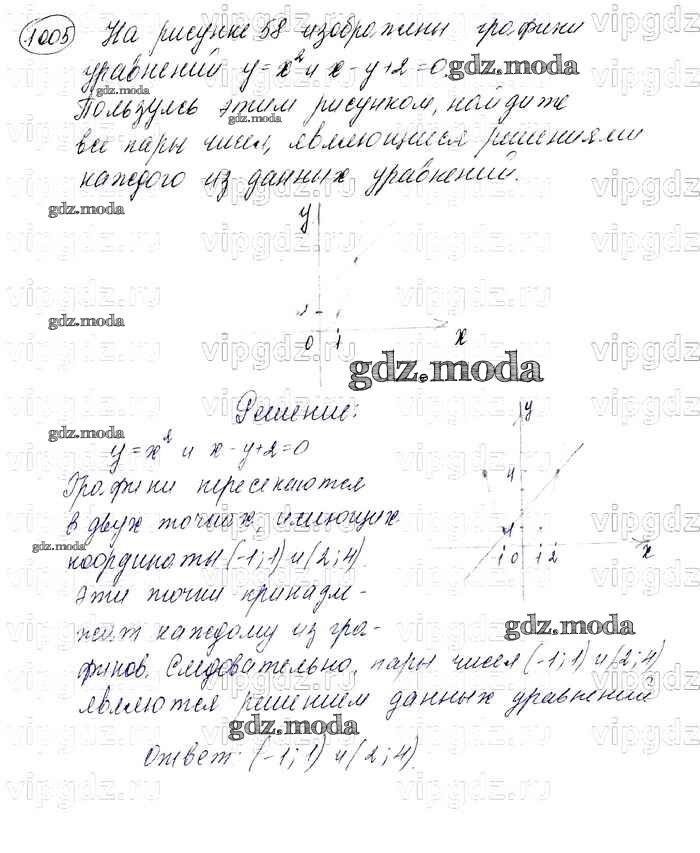 1005 На рисунке 58 изображены графики
уравнений y=x² и x-y+2=0.
Пользуясь этим рисунком, найдите
все пары чисел, являющиеся решениями
каждого из данных уравнений.
y
2
0 1 x
Решение:
y=x² и x-y+2=0
Графики пересекаются
в двух точках, имеющих
координаты (-1;1) и (2;4).
Эти точки принадле-
жат каждому из гра-
фиков. Следовательно, пары чисел (-1;1) и (2;4)
являются решением данных уравнений
y
4
1
-1 0 1 2 x
Ответ: (-1;1) и (2;4).
gdz.moda
gdz.moda
gdz.moda
gdz.moda
gdz.moda
gdz.moda
gdz.moda
gdz.moda
gdz.moda
vipgdz.ru